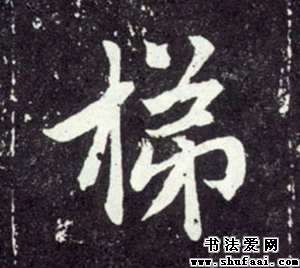 梯
书法爱网
www.shufaai.com